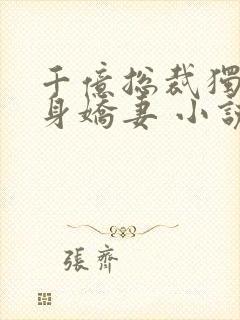 千億总裁獨
身嬌妻 小説
張齊